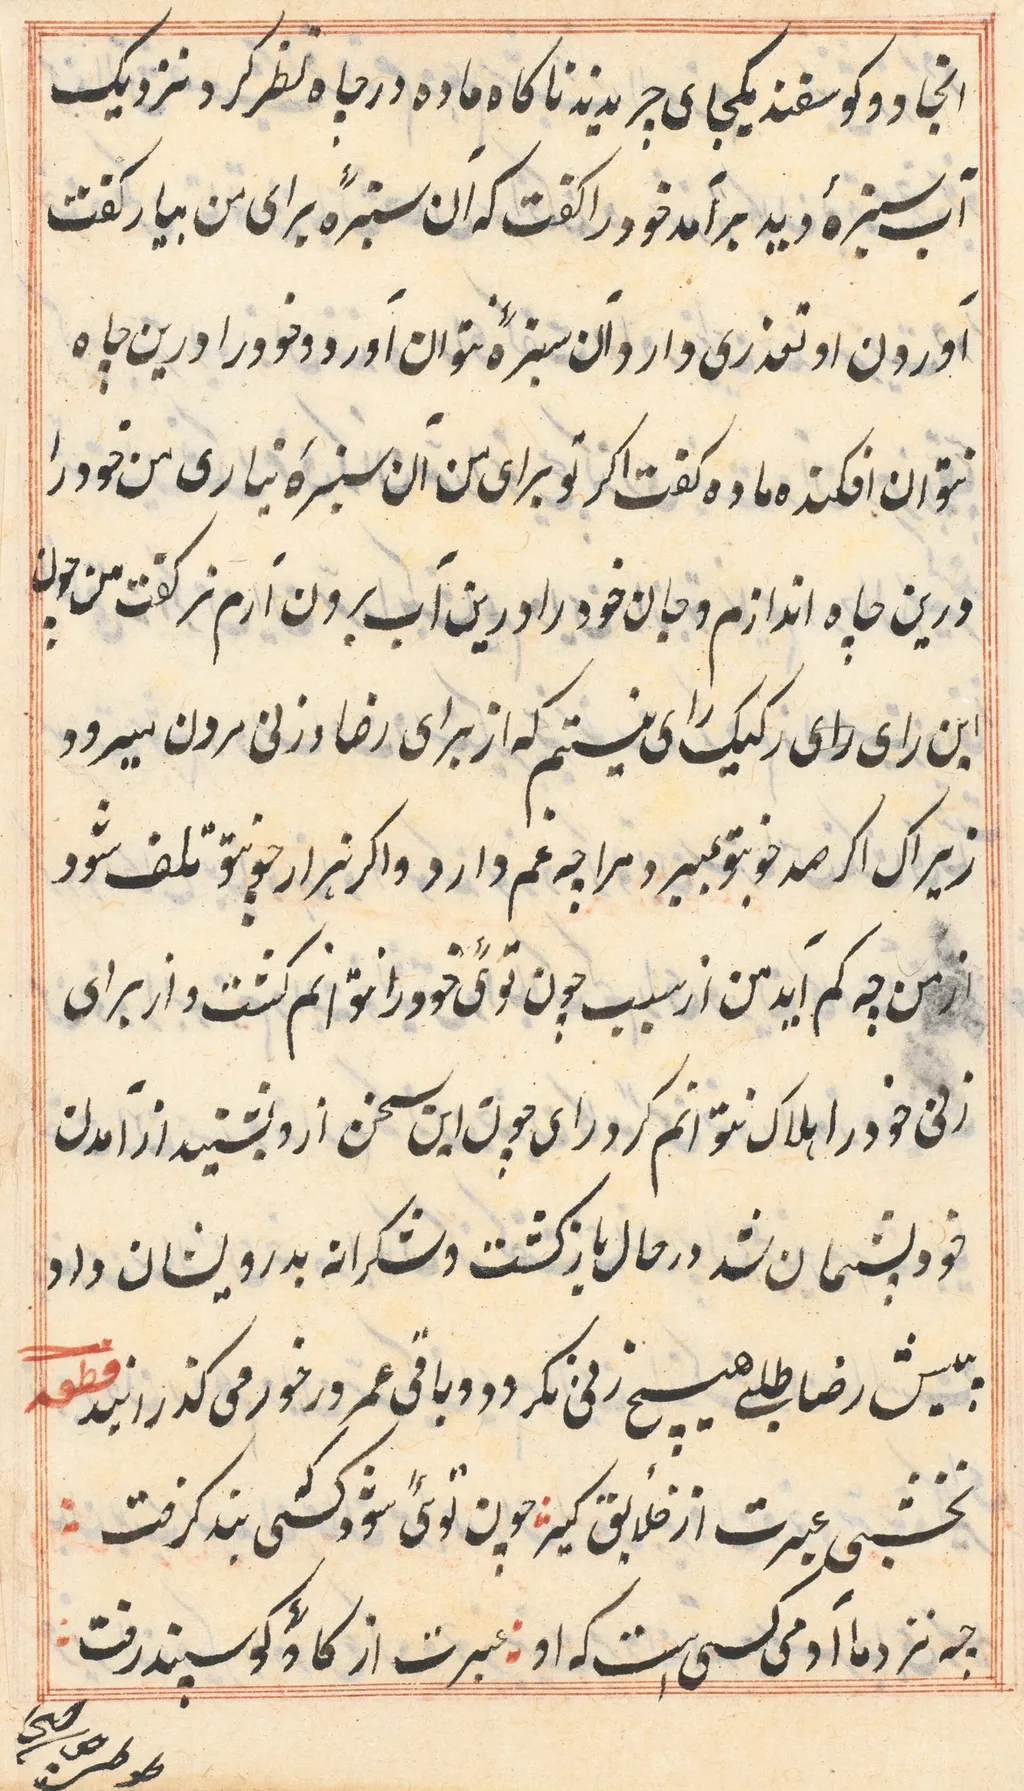 انجا دو کوسفند یکجای چریدند ناکاه ماده در چاه نظر کرد نزدیک
آب سبزهٔ دید برآمد خود را کفت که آن سبزهٔ برای من بیار کفت
آوردن او تعذری دارد آن سبزهٔ نتوان آورد و خود را درین چاه
نتوان افکنده ماده کفت اکر تو برای من آن سبزهٔ نیاری من خود را
درین چاه اندازم و جان خود را درین آب برون آرم نر کفت من چون
این رای رای رکیک رای نیستم که از برای رضاء زنی برون میرود
زیراک اکر صد خوبتو بمیرد مرا چه غم دارد واکر هزار چونتو تلف شود
از من چه کم آید من از سبب چون توئی خود را نتوانم کشت و از برای
زنی خود را هلاک نتوانم کرد رای چون این سخن ازو بشنید از آمدن
خود پشیمان شد در حال بازکشت و شکرانه بدرویشان داد
پیش رضا طلبی هیچ زنی نکردد و باقی عمر در خورمی کذرانید قطعه
نخشبی عبرت از خلایق کیر چون توئی شود کسی بند کرفت
چه نزد ما آدمی کسی است که او عبرت از کاؤ کوسپند رفت